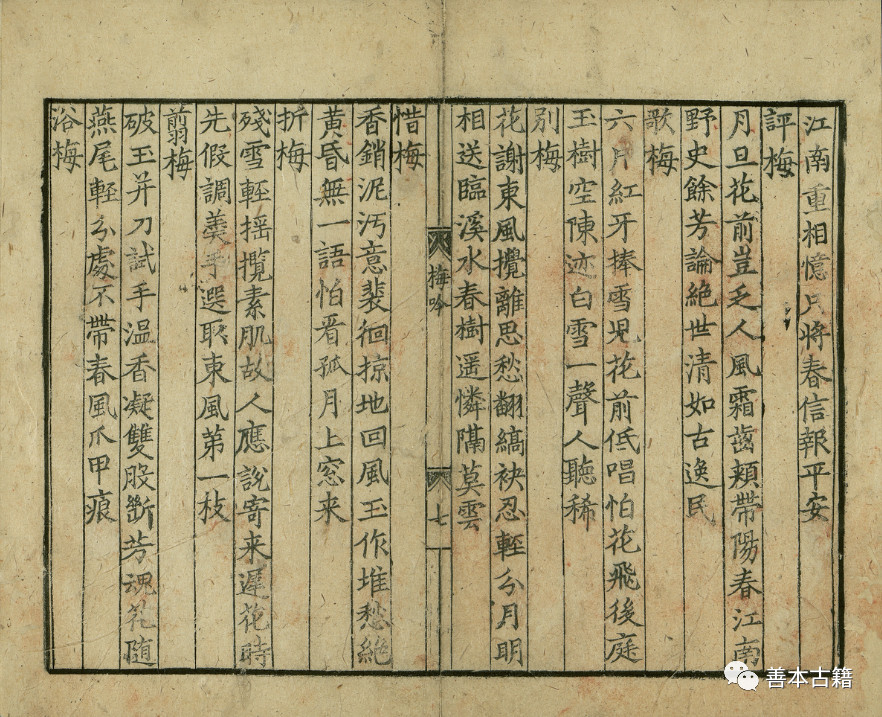 江南重相憶只將春信報平安
評梅
月旦花前豈乏人風霜齒頰帶陽春江南
野史餘芳論絶世清如古逸民
歌梅
六片紅牙捧雪児花前低唱怕花飛後庭
玉樹空陳迹白雪一聲人聽稀
別梅
花謝東風攪離思愁翻縞袂忍輕分月明
相送臨溪水春樹遥憐隔莫雲
梅吟
七
惜梅
香銷泥汚意裴徊掠地回風玉作堆愁絶
黄昏無一語怕看孤月上窓来
折梅
殘雪輕揺攬素肌故人應説寄来遲花時
先假調羹手選取東風第一枝
翦梅
破玉并刀試手温香凝雙股斷芳魂花隨
燕尾輕分處不帶春風爪甲痕
浴梅
善本古籍